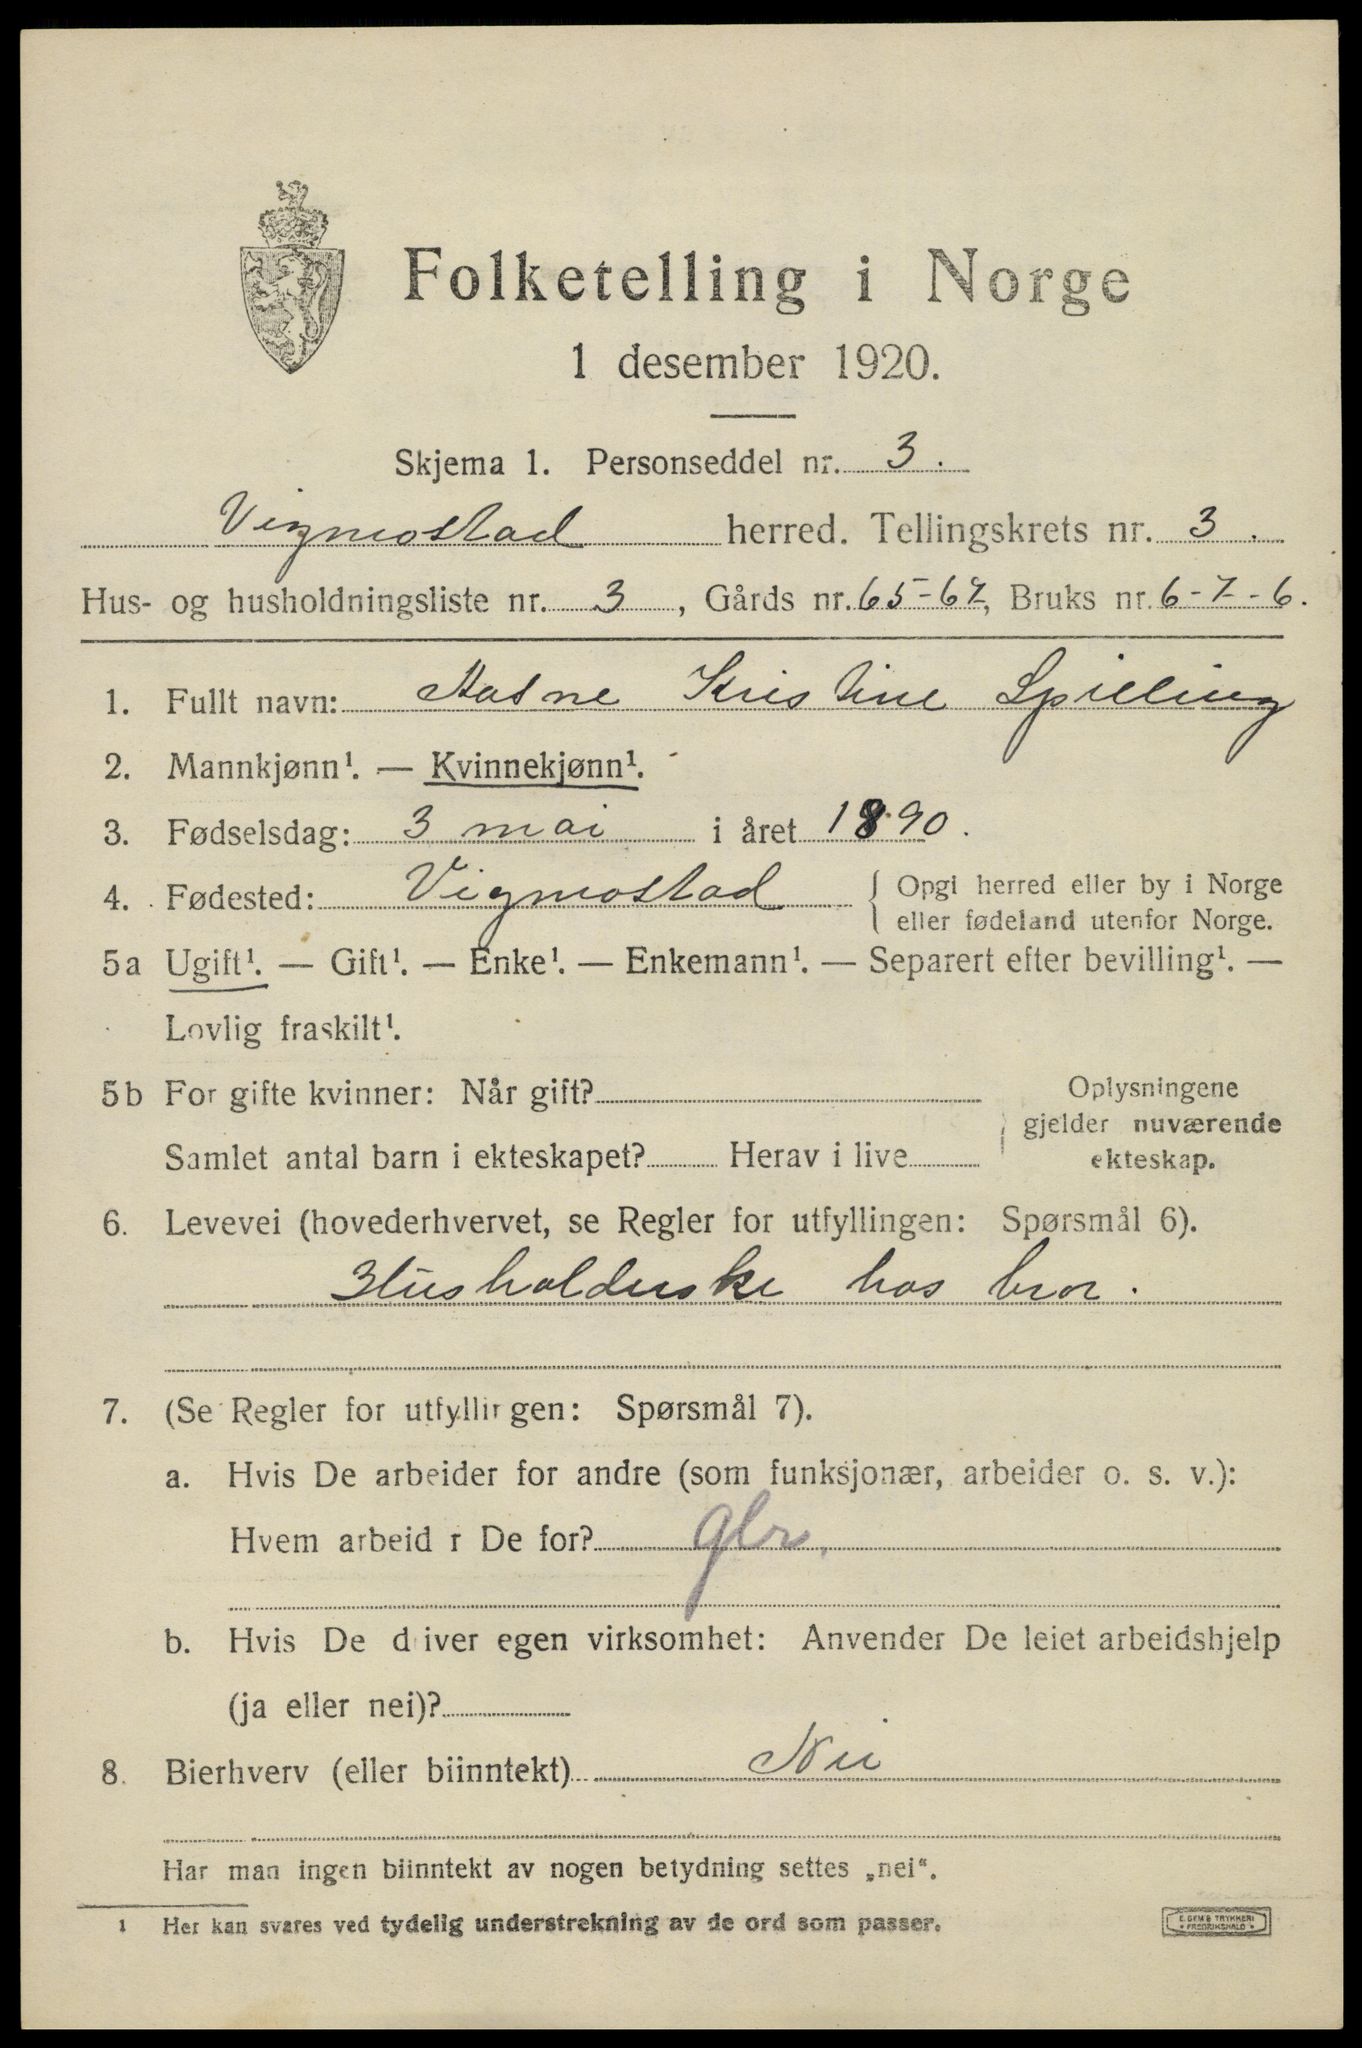 Folketelling i Norge
1 desember 1920.
Skjema 1. Personseddel nr. 3.
Vigmostad herred. Tellingskrets nr. 3.
Hus- og husholdningsliste nr. 3, Gårds nr. 65-67, Bruks nr. 6-7-6.
1. Fullt navn: Aasne Kristine Spilling
2. Mannkjønn¹. — Kvinnekjønn¹.
3. Fødselsdag: 3 mai i året 1890.
4. Fødested: Vigmostad { Opgi herred eller by i Norge
eller fødeland utenfor Norge.
5a Ugift¹. — Gift¹. — Enke¹. — Enkemann¹. — Separert efter bevilling¹. —
Lovlig fraskilt¹.
5b For gifte kvinner: Når gift? Oplysningene
gjelder nuværende
Samlet antal barn i ekteskapet? Herav i live ekteskap.
6. Levevei (hovederhvervet, se Regler for utfyllingen: Spørsmål 6).
Husholderske hos bror.
7. (Se Regler for utfyllingen: Spørsmål 7).
a. Hvis De arbeider for andre (som funksjonær, arbeider o. s. v.):
Hvem arbeid r De for? gbr.
b. Hvis De driver egen virksomhet: Anvender De leiet arbeidshjelp
(ja eller nei)?
8. Bierhverv (eller biinntekt) Nei
Har man ingen biinntekt av nogen betydning settes „nei“.
1 Her kan svares ved tydelig understrekning av de ord som passer.
E. GEMS TRYKKERI
FREDRIKSHALD